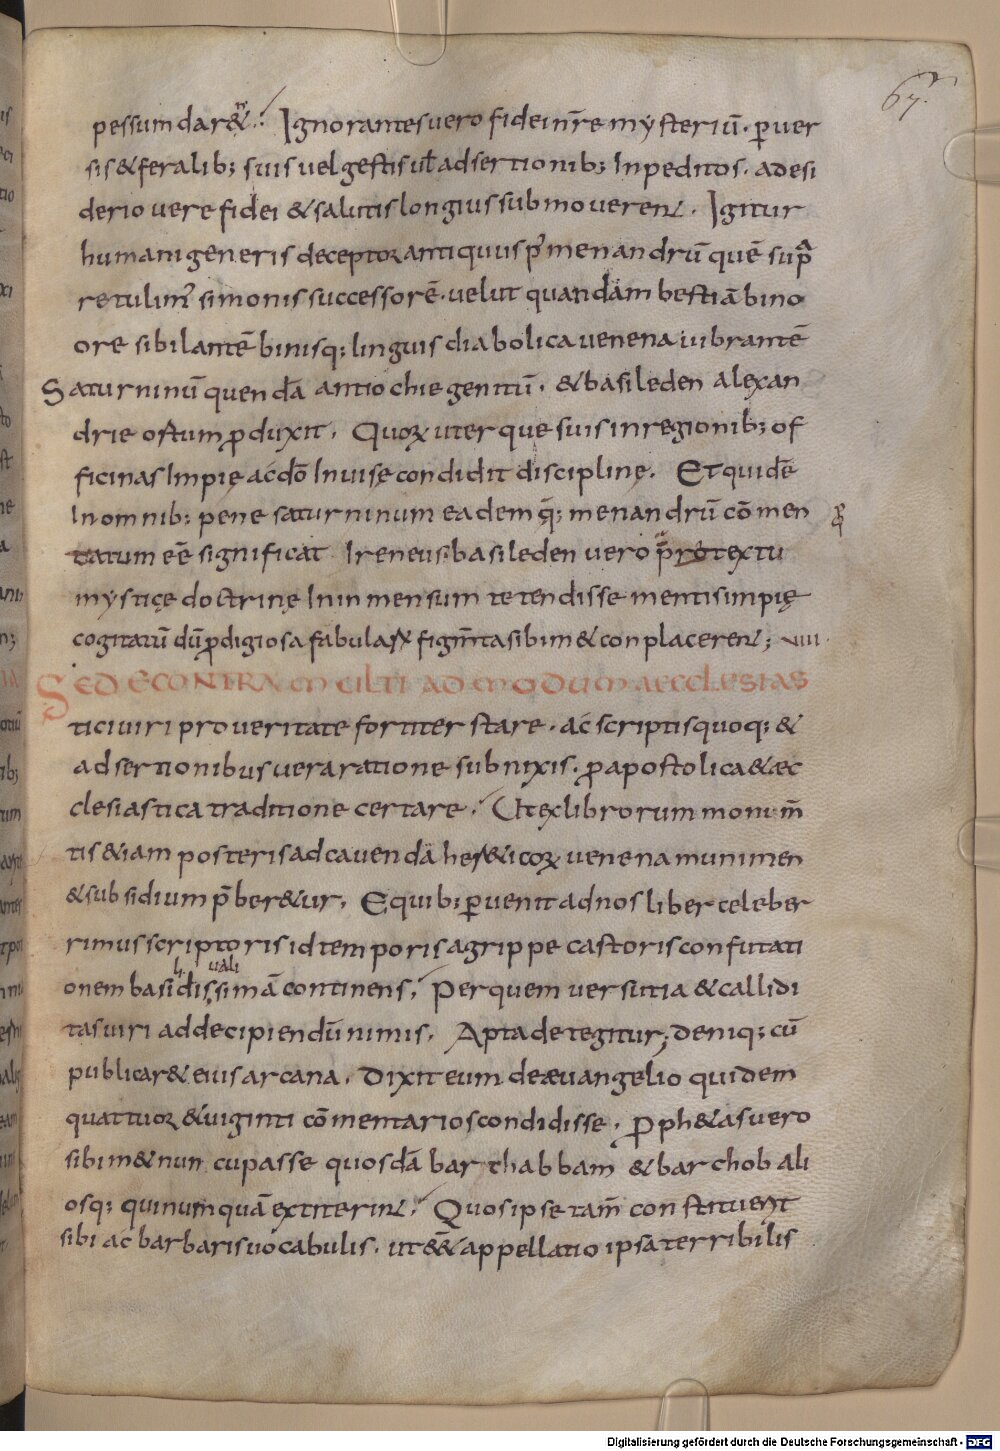 67.
pessumdar&ⁿ. Ignorantes uero fidei nr̄e mysteriū. ꝑuer
sis & feralib; suis uel gestis uł adsertionib; Inpeditos. adesi
derio uere fidei & salutis longius submouerent. Igitur
humani generis deceptor antiquus ꝑ menandrū quē supra
retulim' simonis successorē. uelut quandam bestiā bino
ore sibilantē binisq; linguis diabolica uenena uibrantē
Saturninū quendā antiochie genitū. & basileden alexan
drie ostum ꝓduxit. Quoꝝ uterque suis in regionib; of
ficinas Impię ac dō Inuisę condidit disciplinę. Et quidē
In omnib; pene saturninum eademq̄; menandrū cōmen
tatum eē significat Ireneus. basileden uero p̄rotextu
mysticę doctrinę In inmensum tetendisse mentis impię
cogitatū dū ꝓdigiosa fabulaꝝ figm̄ta sibim& conplacerent; VIII.
SED ECONTRA MULTI ADMODUM AECCLESIAS
tici uiri pro ueritate fortiter stare. ac scriptis quoq; &
adsertionibus uera ratione subnixis. ꝓ apostolica & æc
clesiastica traditione certare. Ut ex librorum monum̄
tis &iam posteris ad cauendā her&icoꝝ uenena munimen
& subsidium p̄ber&ur. E quib; ꝑuenit ad nos liber celeber
rimus scriptoris id temporis agrippe castoris confutati
li uali
onem basidissimā continens. Per quem uersutia & callidi
tas uiri ad decipiendū nimis. Apta detegitur; deniq; cū
publicar& eius arcana. dixit eum de æuangelio quidem
quattuor & uiginti cōmentarios condidisse. ꝓph&as uero
sibim& nuncupasse quosdā barthabbam & barchobali
osq; qui numquā extiterint. Quos ipse tam̄ constituent
sibi ac barbaris uocabulis. ut & appellatio ipsa terribilis
Digitalisierung gefördert durch die Deutsche Forschungsgemeinschaft - DFG